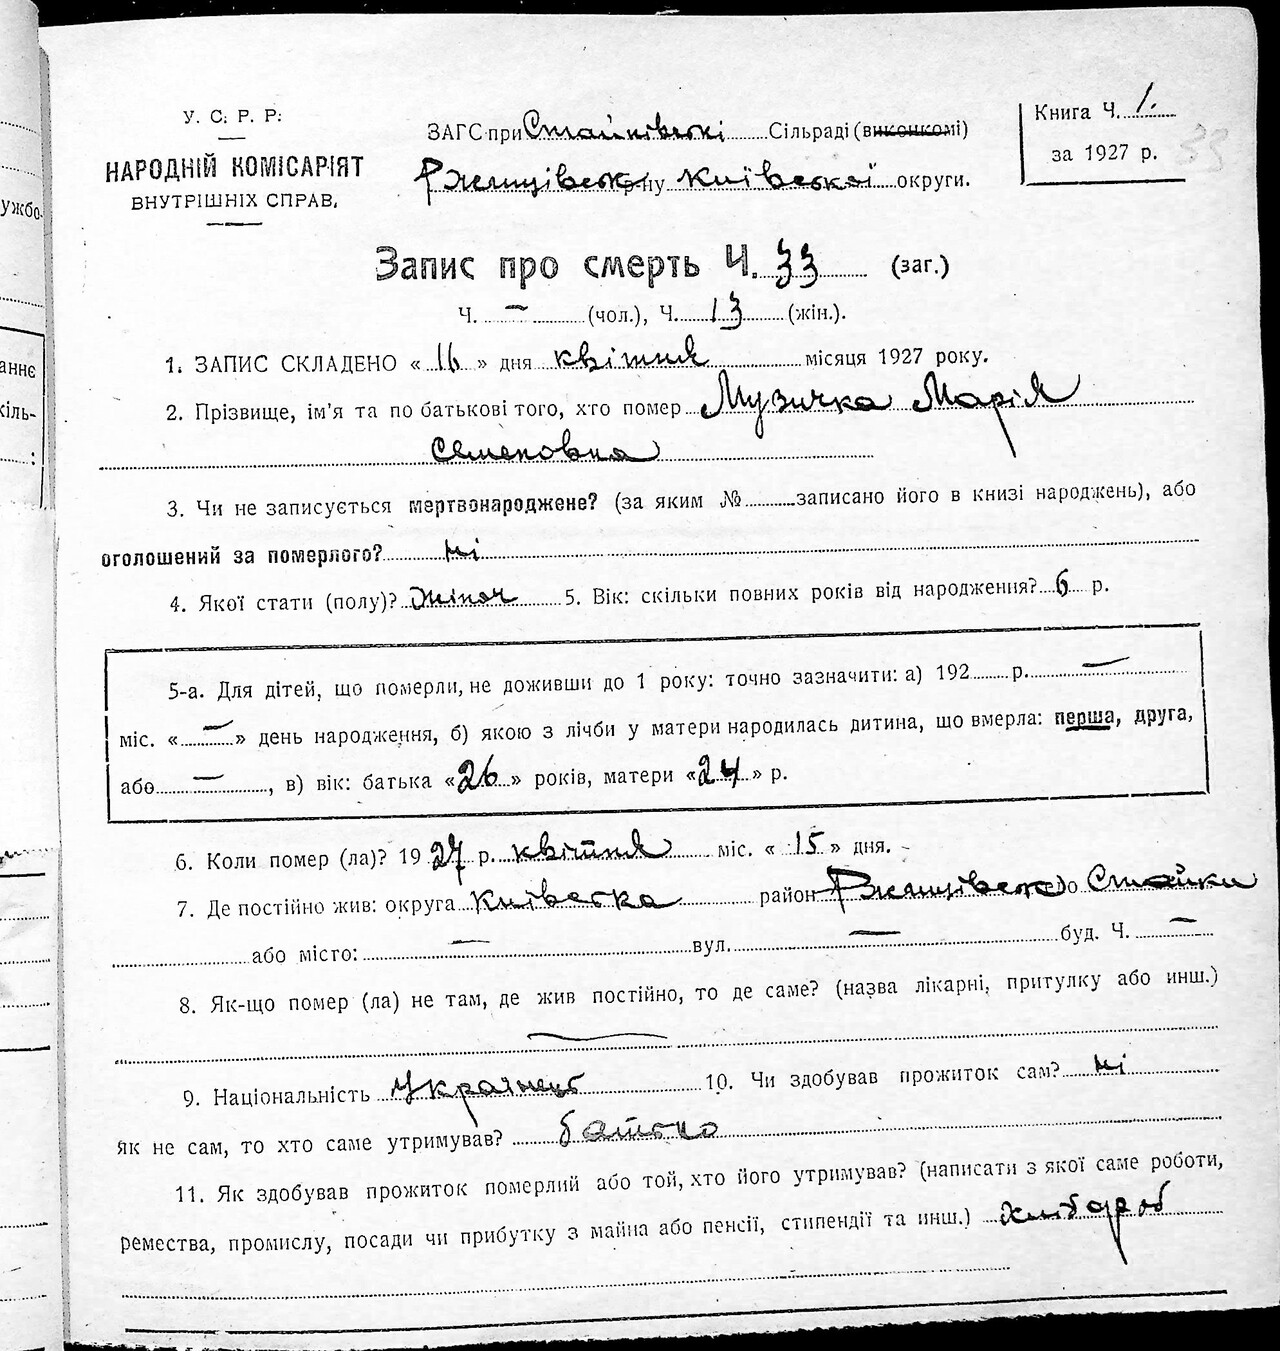 У. С. Р. Р.
НАРОДНІЙ КОМІСАРІЯТ
ВНУТРІШНІХ СПРАВ.
ЗАГС при Стайківські Сільраді (виконкомі)
Ржищівськ р-ну Київської округи.
Книга Ч. 1.
за 1927 р.
33
Запис про смерть Ч. 33 (заг.)
Ч. — (чол.), Ч. 13 (жін.).
1. ЗАПИС СКЛАДЕНО « 16 » дня квітня місяця 1927 року.
2. Прізвище, ім'я та по батькові того, хто помер Музичка Марія
Семеновна
3. Чи не записується мертвонароджене? (за яким № записано його в книзі народжень), або
оголошений за померлого? ні
4. Якої стати (полу)? жіноч 5. Вік: скільки повних років від народження? 6 р.
5-а. Для дітей, що померли, не доживши до 1 року: точно зазначити: а) 192 р. —
міс. « — » день народження, б) якою з лічби у матери народилась дитина, що вмерла: перша, друга,
або — , в) вік: батька « 26 » років, матери « 24 » р.
6. Коли помер (ла)? 19 27 р. квітня міс. « 15 » дня.
7. Де постійно жив: округа Київська район Ржищівськ село Стайки
або місто: — вул. — буд. Ч. —
8. Як-що помер (ла) не там, де жив постійно, то де саме? (назва лікарні, притулку або инш.)
—
9. Національність Українець 10. Чи здобував прожиток сам? ні
Як не сам, то хто саме утримував? батько
11. Як здобував прожиток померлий або той, хто його утримував? (написати з якої саме роботи,
ремества, промислу, посади чи прибутку з майна або пенсії, стипендії та инш.) хлібороб
ужбо-
аннє
кіль-
: